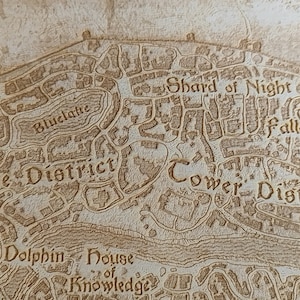 Shard of Night
Bluelake
Fall
e District
Tower Dist
Dolphin
House
of
Knowledge